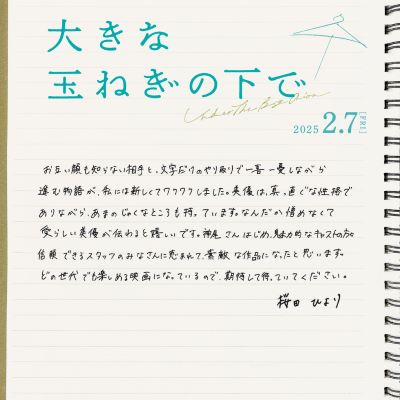 大きな
玉ねぎの下で
Under The Big Onion
2025 2.7 [FRI]
お互い顔も知らない相手と、文字だけのやり取りで一喜一憂しながら
進む物語が、私には新しくてワクワクしました。美優は、真っ直ぐな性格で
ありながら、あまのじゃくなところも持っています。なんだか憎めなくて
愛らしい美優が伝わると嬉しいです。神尾さんはじめ、魅力的なキャストの方、
信頼できるスタッフのみなさんに恵まれて、素敵な作品になったと思います。
どの世代でも楽しめる映画になっているので、期待して待っていてください。
桜田 ひより